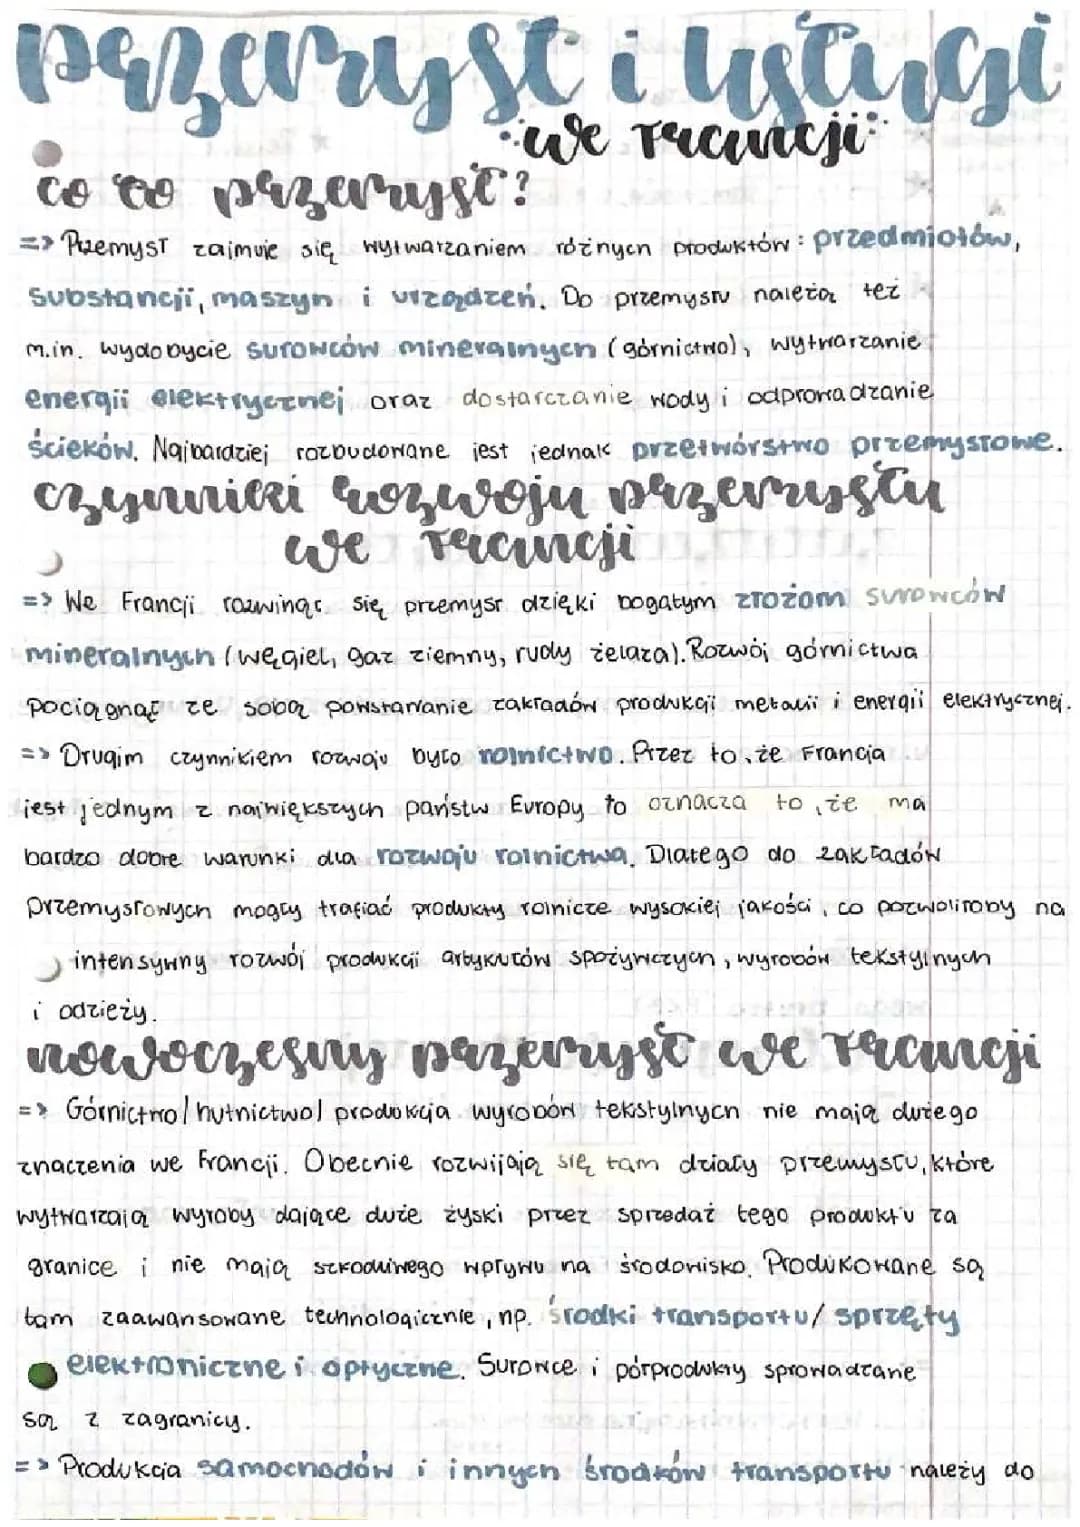 przemysł i usługi
we Francji
co to przemysł?
=> Przemysł zajmuje się wytwarzaniem różnych produktów: przedmiotów,
substancji, maszyn i urządzeń. Do przemysłu należą też
m.in. wydobycie surowców mineralnych (górnictwo), wytwarzanie
energii elektrycznej oraz dostarczanie wody i odprowadzanie
ścieków. Najbardziej rozbudowane jest jednak przetwórstwo przemysłowe.
czynniki rozwoju przemysłu
we Francji
=> We Francji rozwinąć się przemysł dzięki bogatym złożom surowców
mineralnych (węgiel, gaz ziemny, rudy żelaza). Rozwój górnictwa
pociągnął ze sobą powstawanie zakładów produkcji metalii i energii elektrycznej.
=> Drugim czynnikiem rozwoju było rolnictwo. Przez to, że Francja
jest jednym z największych państw Europy to oznacza to, że ma
bardzo dobre warunki dla rozwoju rolnictwa. Dlatego do zakładów
przemysłowych mogły trafiać produkty rolnicze wysokiej jakości, co pozwoliłoby na
intensywny rozwój produkcji artykułów spożywczych, wyrobów tekstylnych
i odzieży.
nowoczesny przemysł we Francji
=> Górnictwo/hutnictwo/produkcja wyrobów tekstylnych nie mają dużego
znaczenia we Francji. Obecnie rozwijają się tam działy przemysłu, które
wytwarzają wyroby dające duże zyski przez sprzedaż tego produktu za
granice i nie mają szkodliwego wpływu na środowisko. Produkowane są
tam zaawansowane technologicznie, np. środki transportu/sprzęty
elektroniczne i optyczne. Surowce i półprodukty sprowadzane
są z zagranicy.
=> Produkcja samochodów i innych środków transportu należy do